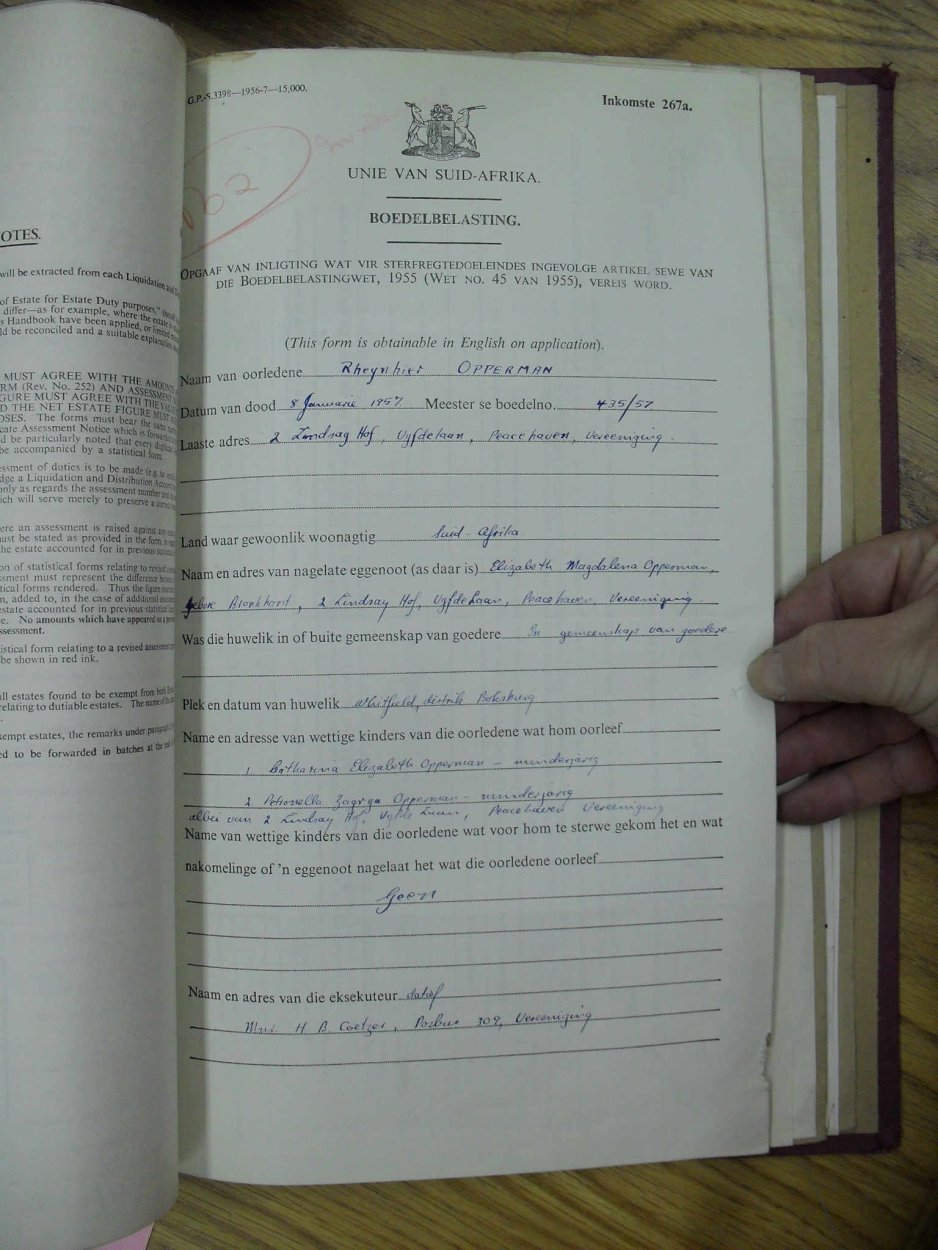 OTES.
will be extracted from each Liquidation and
of Estate for Estate Duty purposes,"
differ—as for example, where the estate
s Handbook have been applied, or limited
ld be reconciled and a suitable explanation
MUST AGREE WITH THE AMOUNT
RM (Rev. No. 252) AND ASSESSMENT
GURE MUST AGREE WITH THE
D THE NET ESTATE FIGURE MUST
OSES. The forms must bear the same
cate Assessment Notice which is forwarded
d be particularly noted that every duplicate
be accompanied by a statistical form.
essment of duties is to be made (e.g. to
dge a Liquidation and Distribution Account
only as regards the assessment number and
hich will serve merely to preserve a correct
ere an assessment is raised against any
must be stated as provided in the form,
the estate accounted for in previous statistical
on of statistical forms relating to revised
ssment must represent the difference between
tical forms rendered. Thus the figure
n, added to, in the case of additional
estate accounted for in previous statistical
e. No amounts which have appeared on a
ssessment.
istical form relating to a revised assessment
be shown in red ink.
all estates found to be exempt from both
relating to dutiable estates. The name of the
empt estates, the remarks under paragraph
ed to be forwarded in batches at the end of
G.P.-S.3398—1956-7—15,000.
Inkomste 267a.
UNIE VAN SUID-AFRIKA.
BOEDELBELASTING.
OPGAAF VAN INLIGTING WAT VIR STERFREGTEDOELEINDES INGEVOLGE ARTIKEL SEWE VAN
DIE BOEDELBELASTINGWET, 1955 (WET NO. 45 VAN 1955), VEREIS WORD.
(This form is obtainable in English on application).
Naam van oorledene Rheynhier OPPERMAN
Datum van dood 8 Januarie 1957 Meester se boedelno. 435/57
Laaste adres 2 Lindsay Hof, Vyfdelaan, Peacehaven, Vereeniging.
Land waar gewoonlik woonagtig Suid-Afrika
Naam en adres van nagelate eggenoot (as daar is) Elizabeth Magdalena Opperman,
gebore Bronkhorst, 2 Lindsay Hof, Vyfdelaan, Peacehaven, Vereeniging.
Was die huwelik in of buite gemeenskap van goedere In gemeenskap van goedere
Plek en datum van huwelik Whitfield, distrik Boksburg
Name en adresse van wettige kinders van die oorledene wat hom oorleef
1. Catharina Elizabeth Opperman - minderjarig
2. Petronella Opperman - minderjarig
albei van 2 Lindsay Hof, Vyfde Laan, Peacehaven Vereeniging
Name van wettige kinders van die oorledene wat voor hom te sterwe gekom het en wat
nakomelinge of 'n eggenoot nagelaat het wat die oorledene oorleef
Geen
Naam en adres van die eksekuteur datief
Mnr. H. B. Coetzer, Posbus 309, Vereeniging